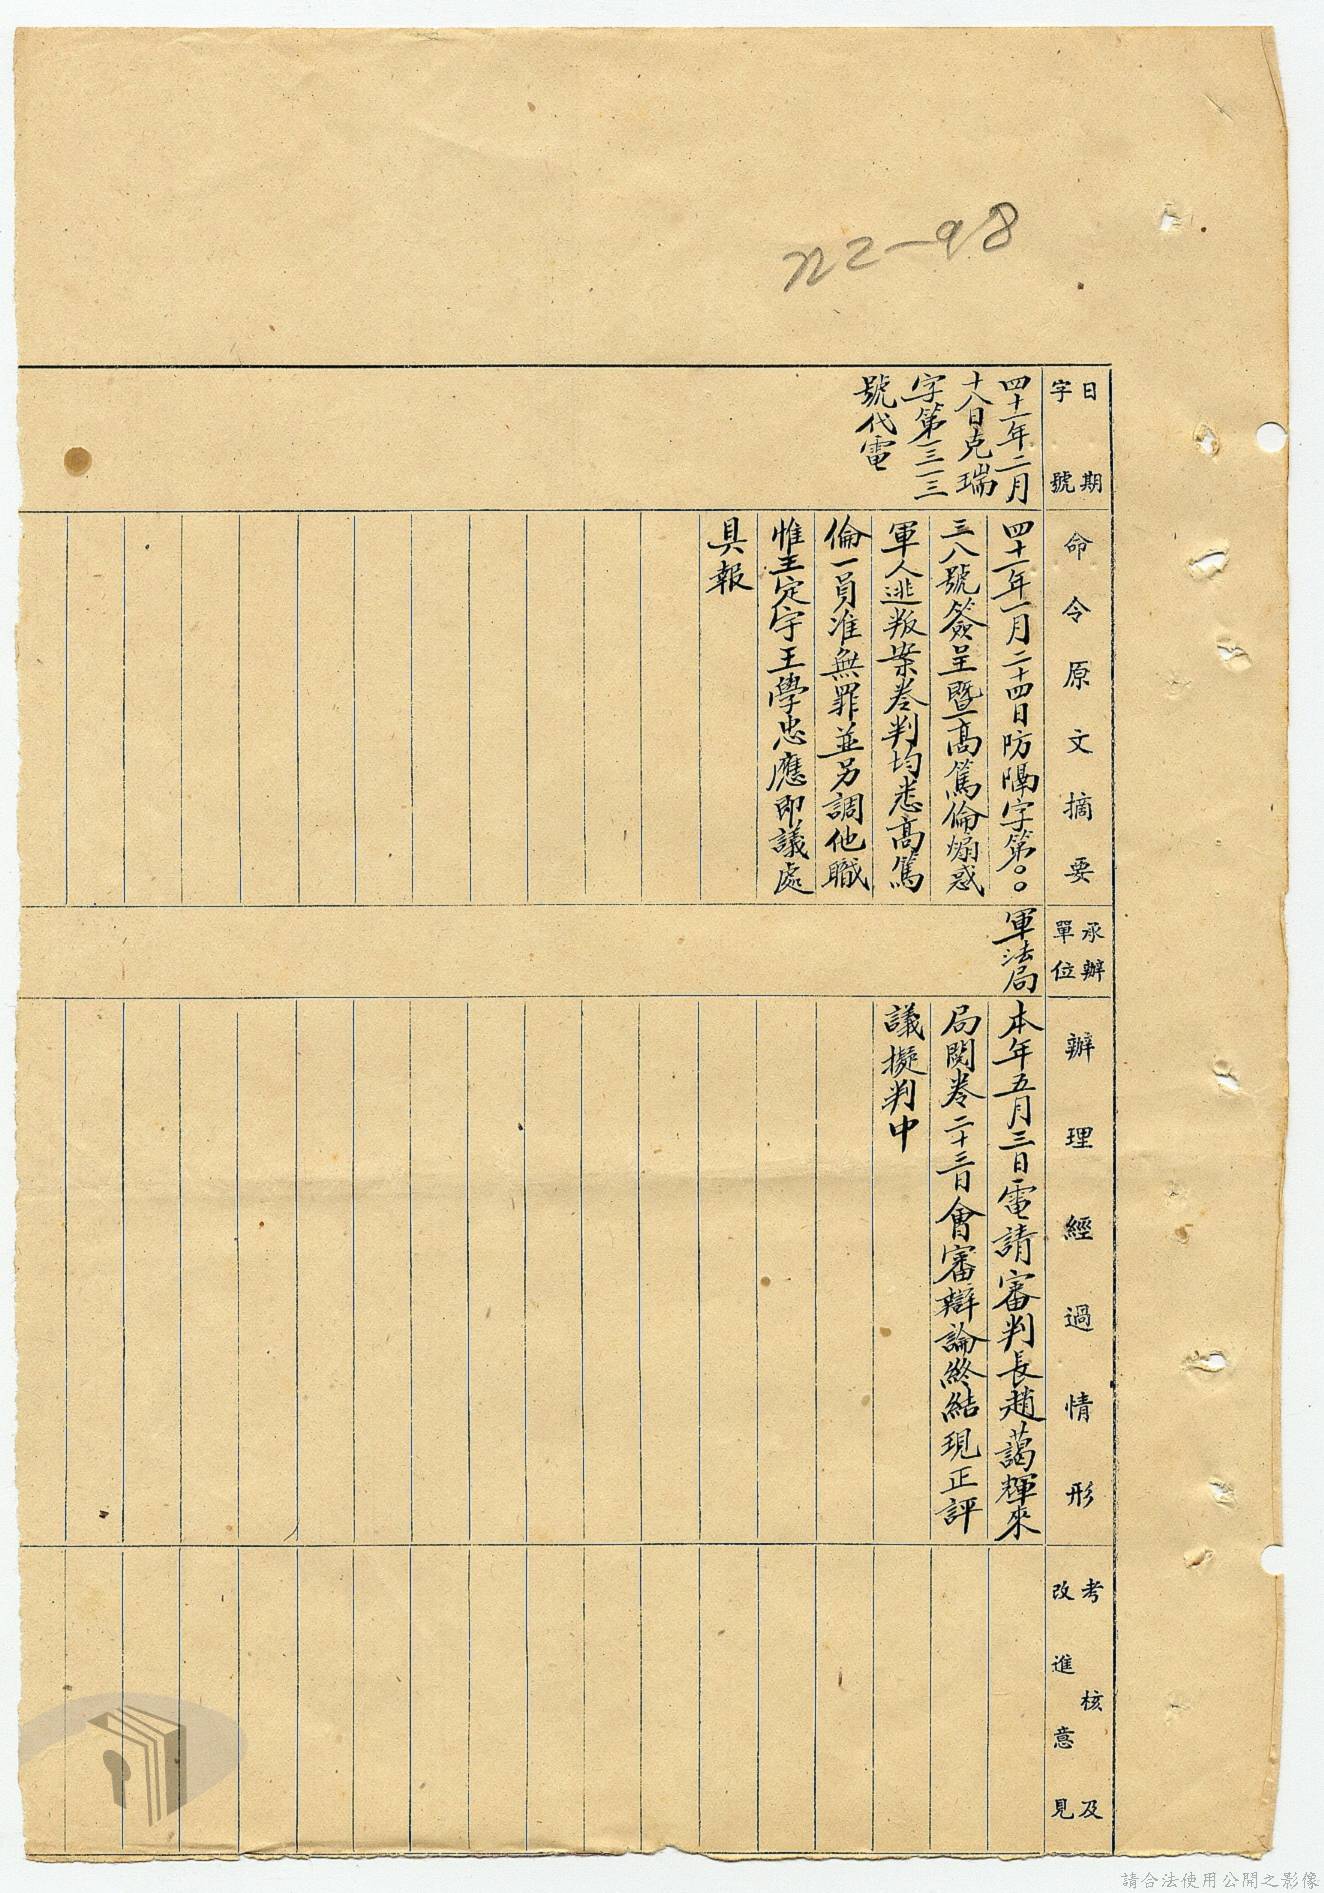 722-98
日期
字號
四十一年二月
十八日克瑞
字第三一三
號代電
命令原文摘要
四十一年一月二十四日防隅字第〇〇
三八號簽呈暨高篤倫煽惑
軍人逃叛案卷判均悉高篤
倫一員准無罪並另調他職
惟王定宇王學忠應即議處
具報
承辦
單位
軍法局
辦理經過情形
本年五月三日電請審判長趙藹輝來
局閱卷二十三日會審辯論終結現正評
議擬判中
考核及
改進意見
請合法使用公開之影像